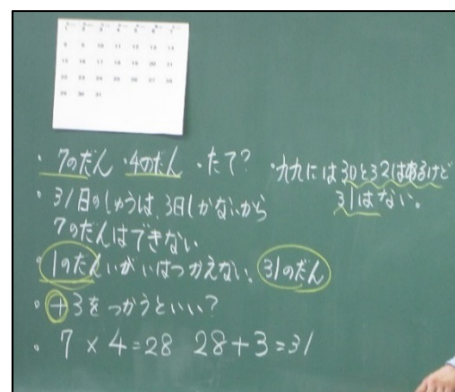 1 2 3 4 5 6 7
8 9 10 11 12 13 14
15 16 17 18 19 20 21
22 23 24 25 26 27 28
29 30 31
・7のだん ・4のだん ・たて?
・九九には30と32はあるけど
31はない。
・31日のしゅうは、3日しかないから
7のだんはできない
・1のだんいがいはつかえない。31のだん
・+3をつかうといい?
・7×4=28 28+3=31